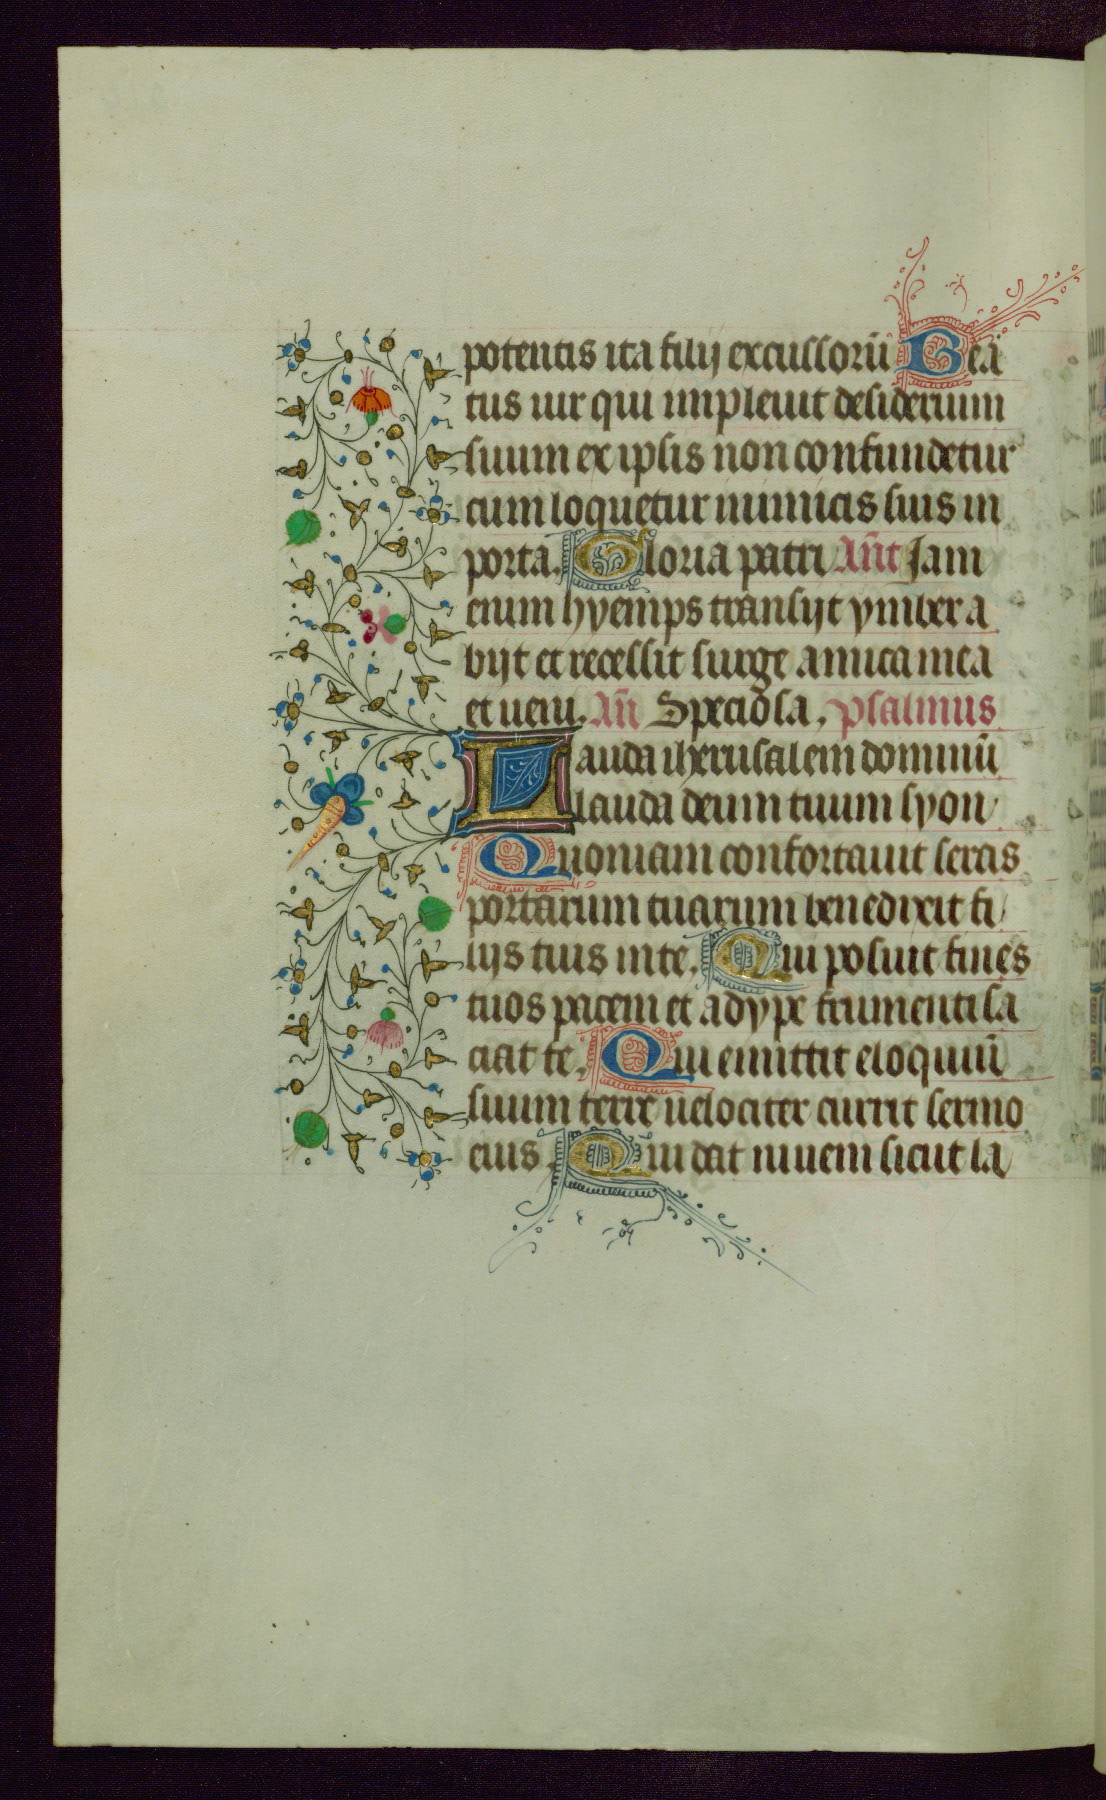 potentis ita filij excussorū Bea
tus uir qui impleuit desiderium
suum ex ipsis non confundetur
cum loquetur inimicis suis in
porta. Gloria patri An̄t Jam
enim hyemps transijt ymber a
bijt et recessit surge amica mea
et ueni. An̄ Speciosa. psalmus
Lauda iherusalem dominū
lauda deum tuum syon
Quoniam confortauit seras
portarum tuarum benedixit fi
lijs tuis in te. Qui posuit fines
tuos pacem et adype frumenti sa
ciat te. Qui emittit eloquiū
suum terre uelociter currit sermo
eius. Qui dat niuem sicut la